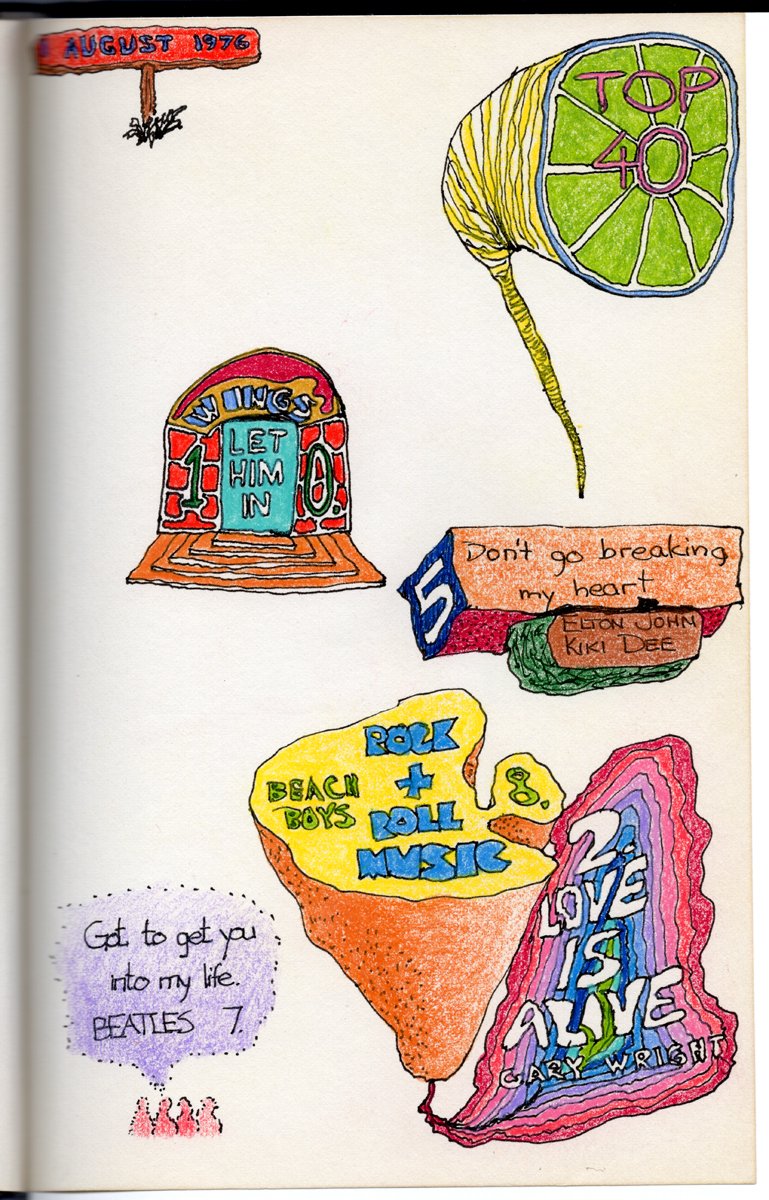 AUGUST 1976
TOP
40
WINGS
LET
HIM
IN
10.
5
Don't go breaking
my heart
ELTON JOHN
KIKI DEE
ROCK
+
ROLL
MUSIC
BEACH
BOYS
8.
2.
LOVE
IS
ALIVE
GARY WRIGHT
Got to get you
into my life.
BEATLES 7.